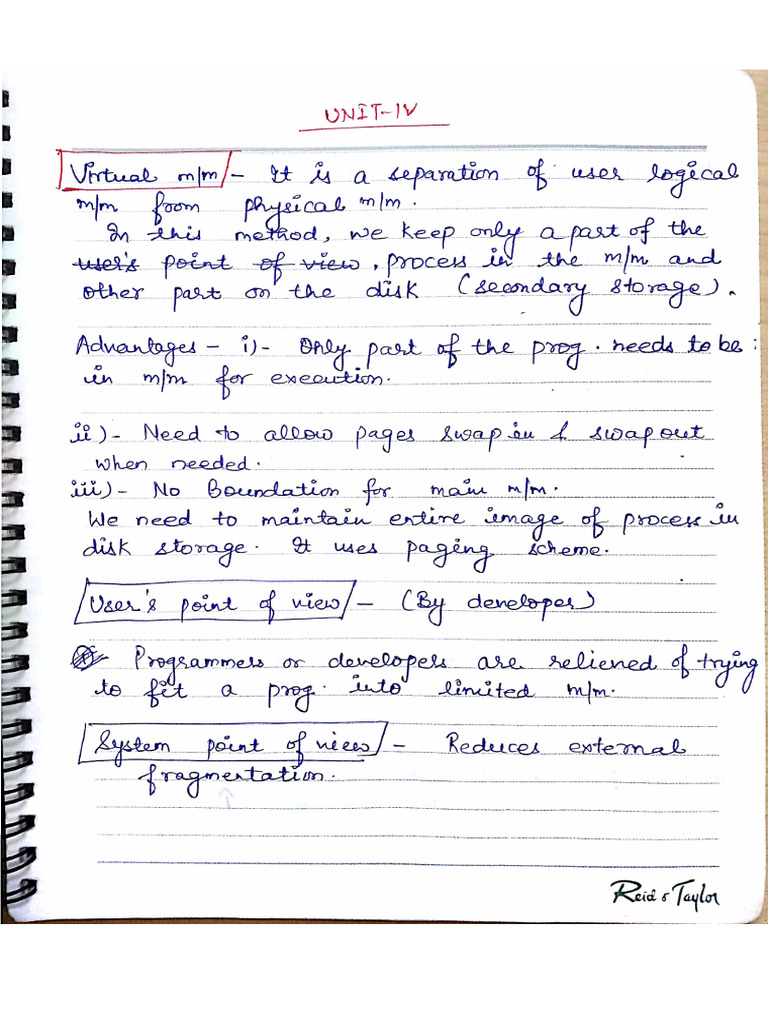 UNIT-IV
Virtual m/m - It is a separation of user logical
m/m from physical m/m.
In this method, we keep only a part of the
user's point of view, process in the m/m and
other part on the disk (secondary storage).
Advantages - i)- Only part of the prog. needs to be:
in m/m for execution.
ii)- Need to allow pages swap in & swap out
when needed.
iii)- No Boundation for main m/m.
We need to maintain entire image of process in
disk storage. It uses paging scheme.
User's point of view - (By developer)
Programmers or developers are relieved of trying
to fit a prog. into limited m/m.
System point of view - Reduces external
fragmentation.
Reid & Taylor